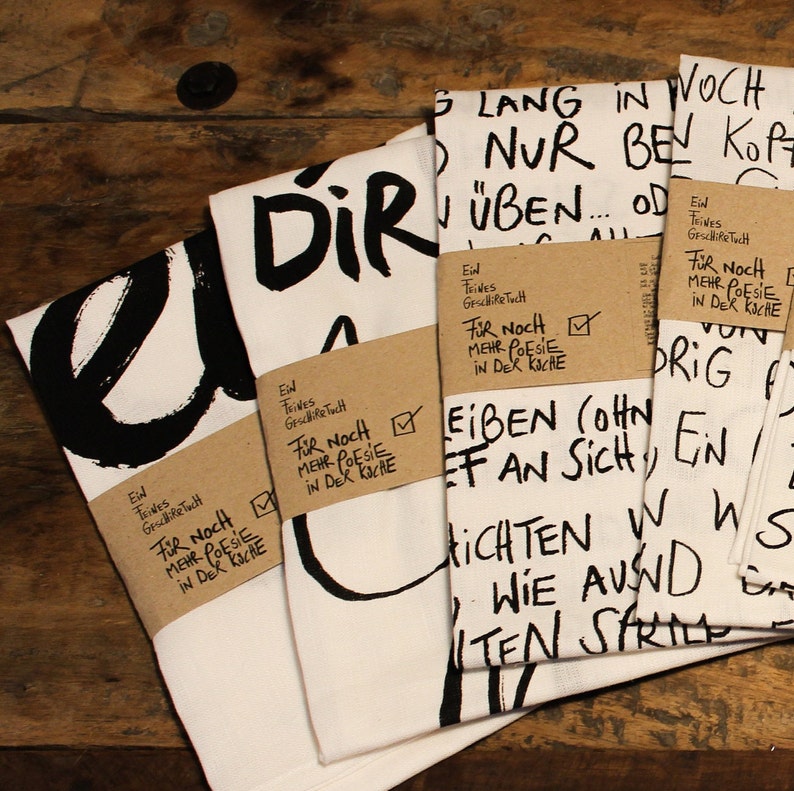 DIR
EIN
FEINES
GESCHIRRTUCH
FÜR NOCH
MEHR POESIE
IN DER KÜCHE
EIN
FEINES
GESCHIRRTUCH
FÜR NOCH
MEHR POESIE
IN DER KÜCHE
G LANG IN
NUR BE
N ÜBEN... OD
EIN
FEINES
GESCHIRRTUCH
FÜR NOCH
MEHR POESIE
IN DER KÜCHE
EIBEN (OHN
EF AN SICH
HICHTEN W
, WIE AUS
LTEN
NOCH
N KOPF
EIN
FEINES
GESCHIRRTUCH
FÜR NOCH
MEHR POESIE
IN DER KÜCHE
VON
DRIG
EIN
W
ND